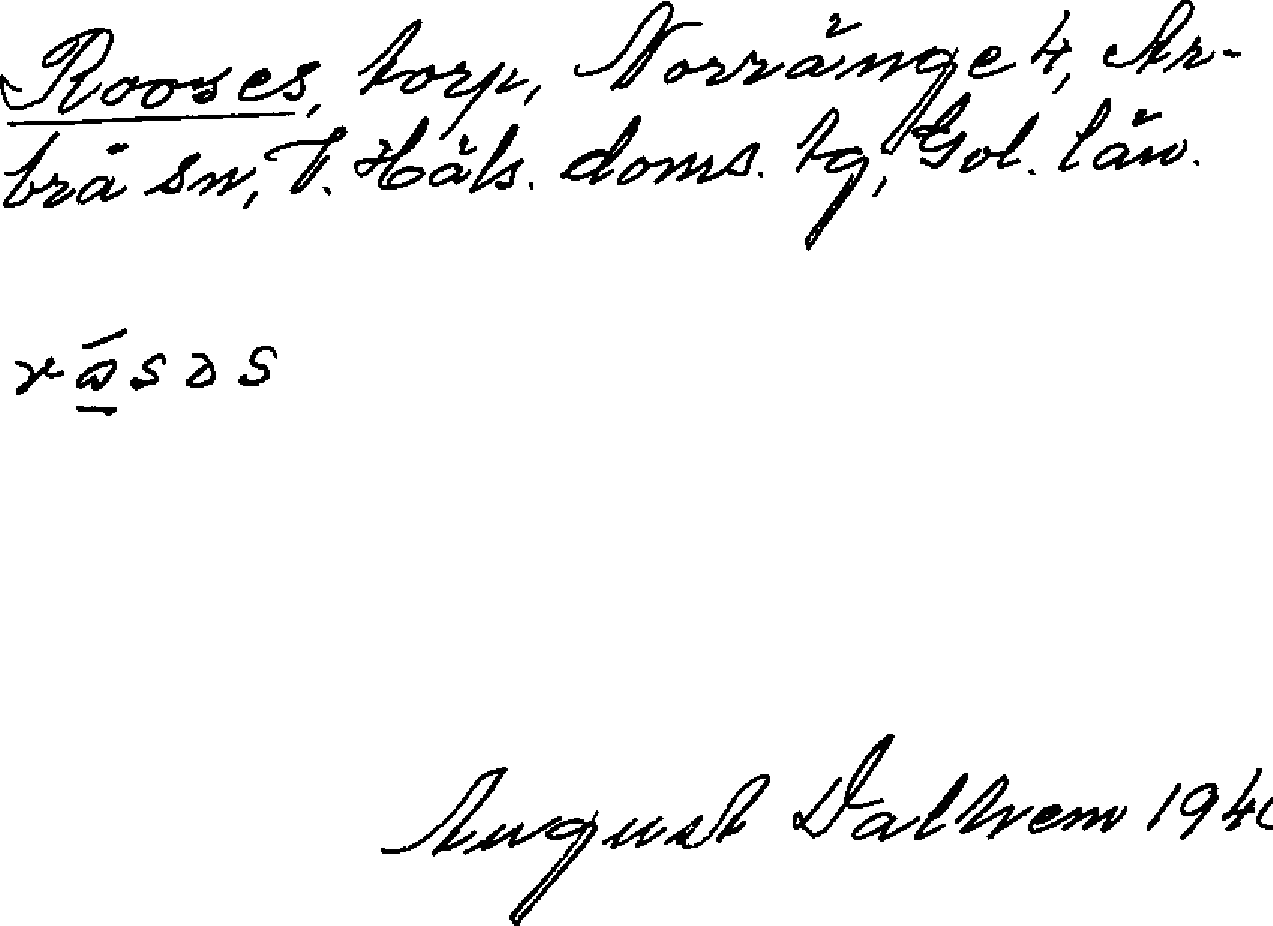 Rooses, torp, Norränge 4, Ar-
brå sn, V. Häls. doms. tg, Gvl. län.
August Dalhem 194